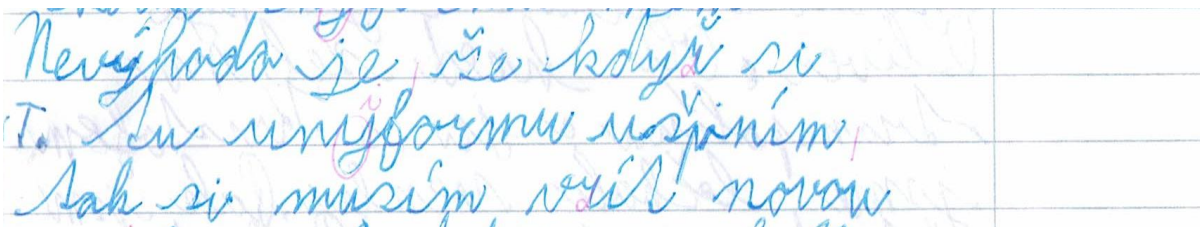 Nevýhoda je že když si
T. tu unýformu ušpiním
tak si musím vzít novou